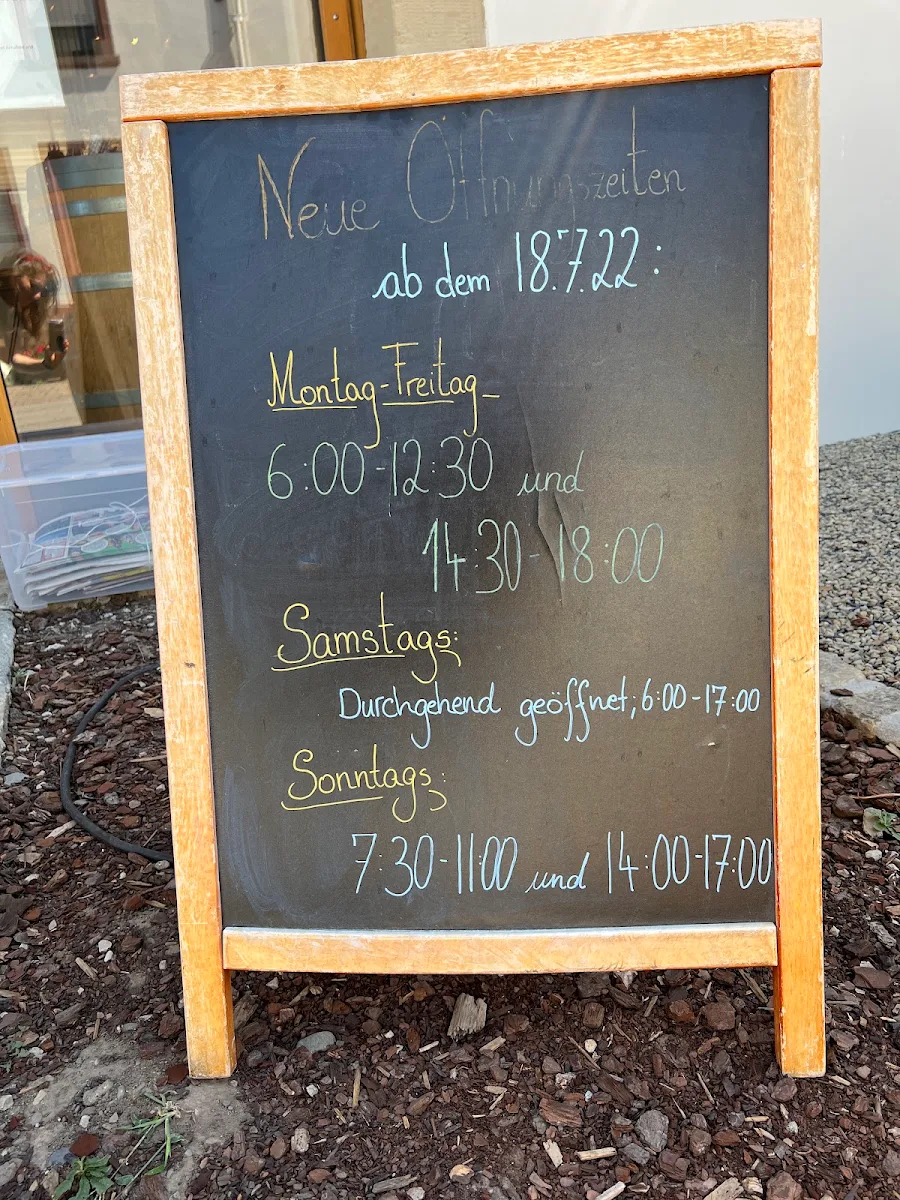 Neue Öffnungszeiten
ab dem 18.7.22:
Montag-Freitag
6:00-12:30 und
14:30-18:00
Samstags:
Durchgehend geöffnet; 6:00-17:00
Sonntags:
7:30-11:00 und 14:00-17:00